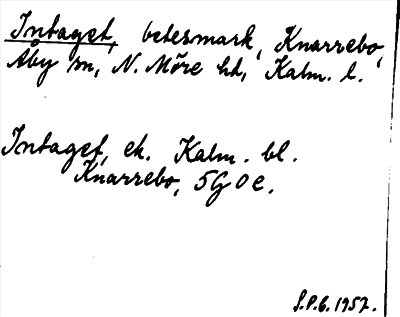 Intaget, betesmark, Knarrebo,
Åby sn, N. Möre hd, Kalm. l.
Intaget, ek. Kalm. bl.
Knarrebo, 5G 0e.
S.P.G. 1957.